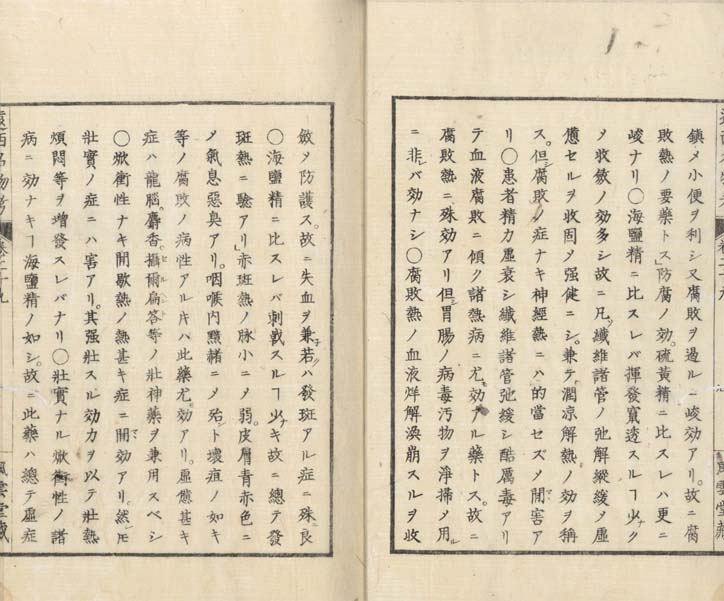 鎮メ小便ヲ利シ又腐敗ヲ遏ルニ峻効アリ。故ニ腐
敗熱ノ要藥トス」防腐ノ効。硫黃精ニ比スレハ更ニ
峻ナリ〇海鹽精ニ比スレバ揮發竄透スルヿ少ナク
メ收斂ノ効多シ故ニ凡ソ纖維諸管ノ弛解縱緩メ虛
憊セルヲ收固メ强健ニシ。兼テ潤涼解熱ノ効ヲ稱
ス。但シ腐敗ノ症ナキ神經熱ニハ的當セズメ間害ア
リ〇患者精力虛衰シ纖維諸管弛緩シ酷厲毒アリ
テ血液腐敗ニ傾ク諸熱病ニ尤モ効アル藥トス。故ニ
腐敗熱ニ殊効アリ但シ胃腸ノ病毒汚物ヲ淨掃メ用ル
ニ非レバ効ナシ〇腐敗熱ノ血液烊解渙崩スルヲ收
斂ヲ防護ス。故ニ失血ヲ兼若クハ發斑アル症ニ殊良
〇海鹽精ニ比スレバ刺戟スルヿ少ナキ故ニ總テ發
斑熱ニ驗アリ」赤斑熱ノ脉小ニメ弱。皮膚青赤色ニ
メ氣息惡臭アリ。咽喉内㷔赭ニメ殆ト壞疽ノ如キ
等ノ腐敗ノ病性アル𪜈ハ此藥尤モ効アリ。虛憊甚キ
症ハ龍腦。麝香。攝爾扁答等ノ壯神藥ヲ兼用スベシ
〇焮衝性ナキ間歇熱ノ熱甚キ症ニ間効アリ。然𪜈
壯實ノ症ニハ害アリ。其强壯スル効力ヲ以テ壯熱
煩悶等ヲ增發スレバナリ〇壯實ナル焮衝性ノ諸
病ニ効ナキヿ海鹽精ノ如シ。故ニ此藥ハ總テ虛症
遠西名物考
卷二十九
風雲堂藏